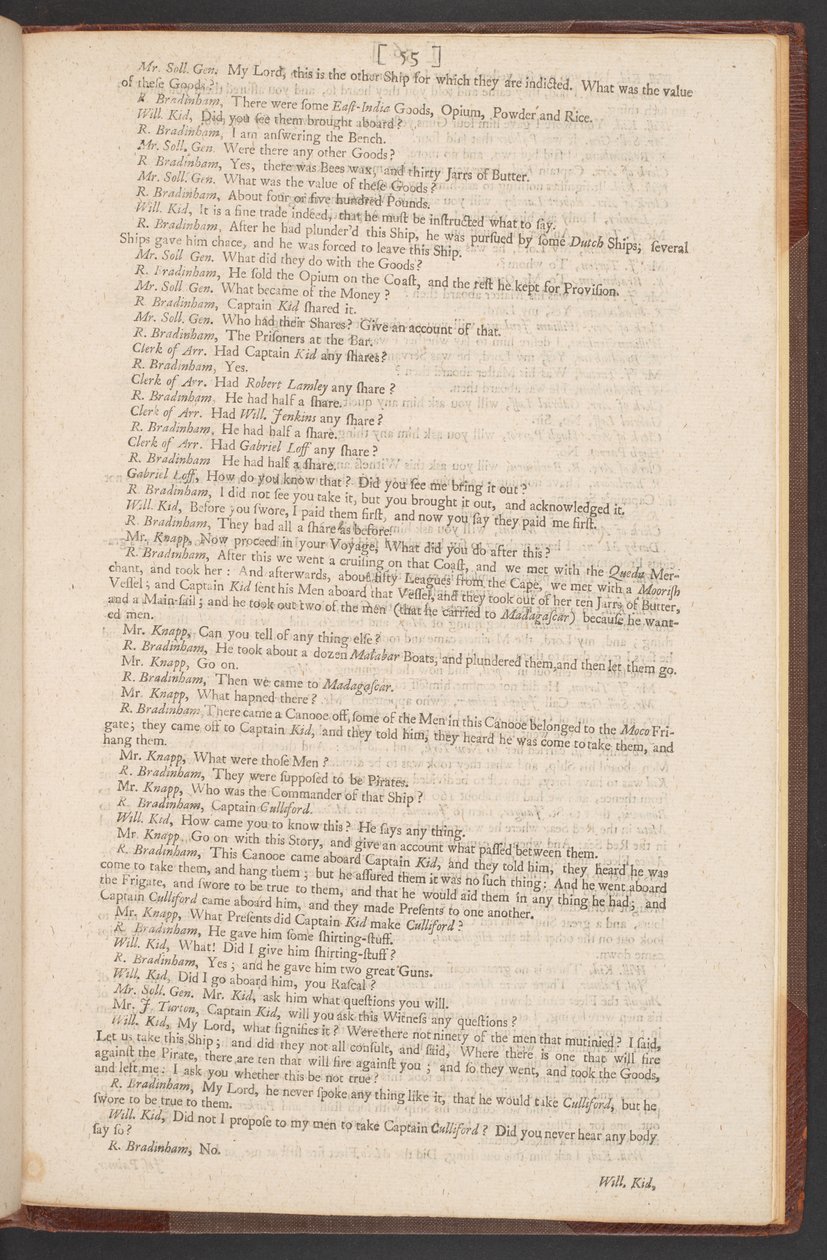 [ 55 ]
Mr. Soll. Gen. My Lord, this is the other Ship for which they are indicted. What was the value
of theſe Goods?
R. Bradinham, There were ſome Eaſt-India Goods, Opium, Powder and Rice.
Will. Kid, Did you ſee them brought aboard?
R. Bradinham, I am anſwering the Bench.
Mr. Soll. Gen. Were there any other Goods?
R Bradinham, Yes, there was Bees wax, and thirty Jarrs of Butter.
Mr. Soll. Gen. What was the value of theſe Goods?
R. Bradinham, About four or five hundred Pounds.
Will. Kid, It is a fine trade indeed, that he muſt be inſtructed what to ſay.
R. Bradinham, After he had plunder'd this Ship, he was purſued by ſome Dutch Ships; ſeveral
Ships gave him chace, and he was forced to leave this Ship.
Mr. Soll Gen. What did they do with the Goods?
R. Bradinham, He ſold the Opium on the Coaſt, and the reſt he kept for Proviſion.
Mr. Soll. Gen. What became of the Money?
R Bradinham, Captain Kid ſhared it.
Mr. Soll. Gen. Who had their Shares? Give an account of that.
R. Bradinham, The Priſoners at the Bar.
Clerk of Arr. Had Captain Kid any ſhares?
R. Bradinham, Yes.
Clerk of Arr. Had Robert Lamley any ſhare?
R. Bradinham, He had half a ſhare.
Clerk of Arr. Had Will. Jenkins any ſhare?
R. Bradinham, He had half a ſhare.
Clerk of Arr. Had Gabriel Loff any ſhare?
R. Bradinham He had half a ſhare.
Gabriel Loff, How do you know that? Did you ſee me bring it out?
R. Bradinham, I did not ſee you take it, but you brought it out, and acknowledged it.
Will. Kid, Before you ſwore, I paid them firſt, and now you ſay they paid me firſt.
R. Bradinham, They had all a ſhare as before.
Mr. Knapp, Now proceed in your Voyage, What did you do after this?
R. Bradinham, After this we went a cruiſing on that Coaſt, and we met with the Queda Mer-
chant, and took her: And afterwards, about fifty Leagues from the Cape, we met with a Mooriſh
Veſſel; and Captain Kid ſent his Men aboard that Veſſel, and they took out of her ten Jarrs of Butter,
and a Main-ſail; and he took out two of the men (that he carried to Madagaſcar) becauſe he want-
ed men.
Mr. Knapp, Can you tell of any thing elſe?
R. Bradinham, He took about a dozen Malabar Boats, and plundered them, and then let them go.
Mr. Knapp, Go on.
R. Bradinham, Then we came to Madagaſcar.
Mr. Knapp, What hapned there?
R. Bradinham, There came a Canooe off, ſome of the Men in this Canooe belonged to the Moco Fri-
gate; they came off to Captain Kid, and they told him, they heard he was come to take them, and
hang them.
Mr. Knapp, What were thoſe Men?
R. Bradinham, They were ſuppoſed to be Pirates.
Mr. Knapp, Who was the Commander of that Ship?
R. Bradinham, Captain Culliford.
Will. Kid, How came you to know this? He ſays any thing.
Mr. Knapp, Go on with this Story, and give an account what paſſed between them.
R. Bradinham, This Canooe came aboard Captain Kid, and they told him, they heard he was
come to take them, and hang them; but he aſſured them it was no ſuch thing: And he went aboard
the Frigate, and ſwore to be true to them, and that he would aid them in any thing he had; and
Captain Culliford came aboard him, and they made Preſents to one another.
Mr. Knapp, What Preſents did Captain Kid make Culliford?
R. Bradinham, He gave him ſome ſhirting-ſtuff.
Will. Kid, What! Did I give him ſhirting-ſtuff?
R. Bradinham, Yes; and he gave him two great Guns.
Will. Kid, Did I go aboard him, you Raſcal?
Mr. Soll. Gen. Mr. Kid, ask him what queſtions you will.
Mr. J. Turton, Captain Kid, will you ask this Witneſs any queſtions?
Will. Kid, My Lord, what ſignifies it? Were there not ninety of the men that mutinied? I ſaid,
Let us take this Ship; and did they not all conſult, and ſaid, Where there is one that will fire
againſt the Pirate, there are ten that will fire againſt you; and ſo they went, and took the Goods,
and left me: I ask you whether this be not true?
R. Bradinham, My Lord, he never ſpoke any thing like it, that he would take Culliford, but he
ſwore to be true to them.
Will. Kid, Did not I propoſe to my men to take Captain Culliford? Did you never hear any body
ſay ſo?
R. Bradinham, No.
Will. Kid,